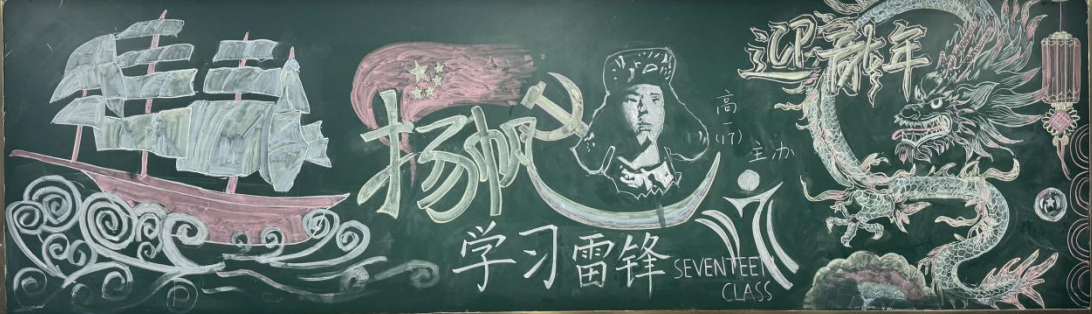 扬帆
学习雷锋
高一(17)
主办
SEVENTEEN
CLASS
迎龙年